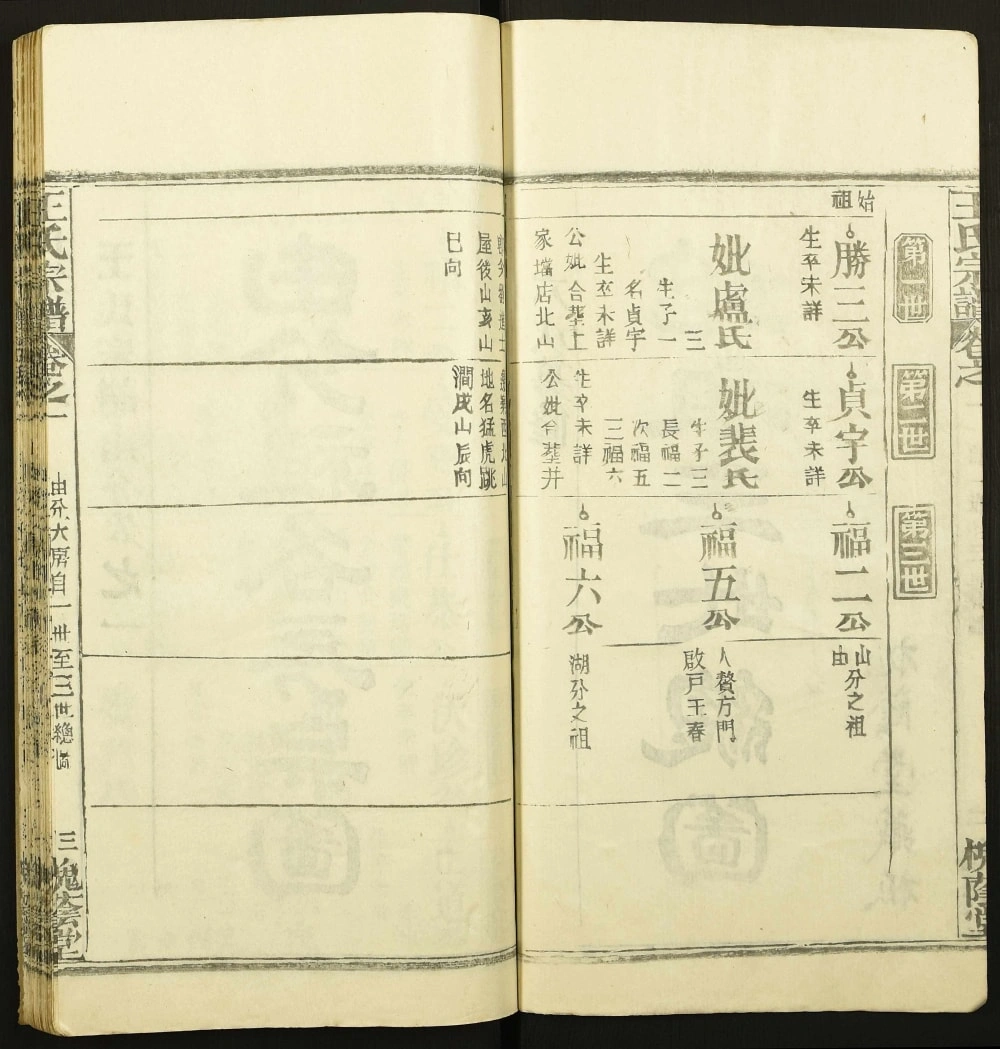 王氏宗譜
卷之
槐蔭堂
第一世
第二世
第三世
始
祖
勝三公
生卒未詳
妣盧氏
三
生子一
名貞宇
生卒未詳
公妣合塟土
家壋店北山
屋後山亥山
巳向
貞宇公
生卒未詳
妣裴氏
生子三
長福二
次福五
三福六
生卒未詳
公妣合塟井
地名猛虎跳
澗戌山辰向
福二公
福五公
福六公
山分之祖
由
人贅方門
啟戸王春
湖分之祖
王氏宗譜
卷之一
由分大房自一世至三世總
三
槐蔭堂